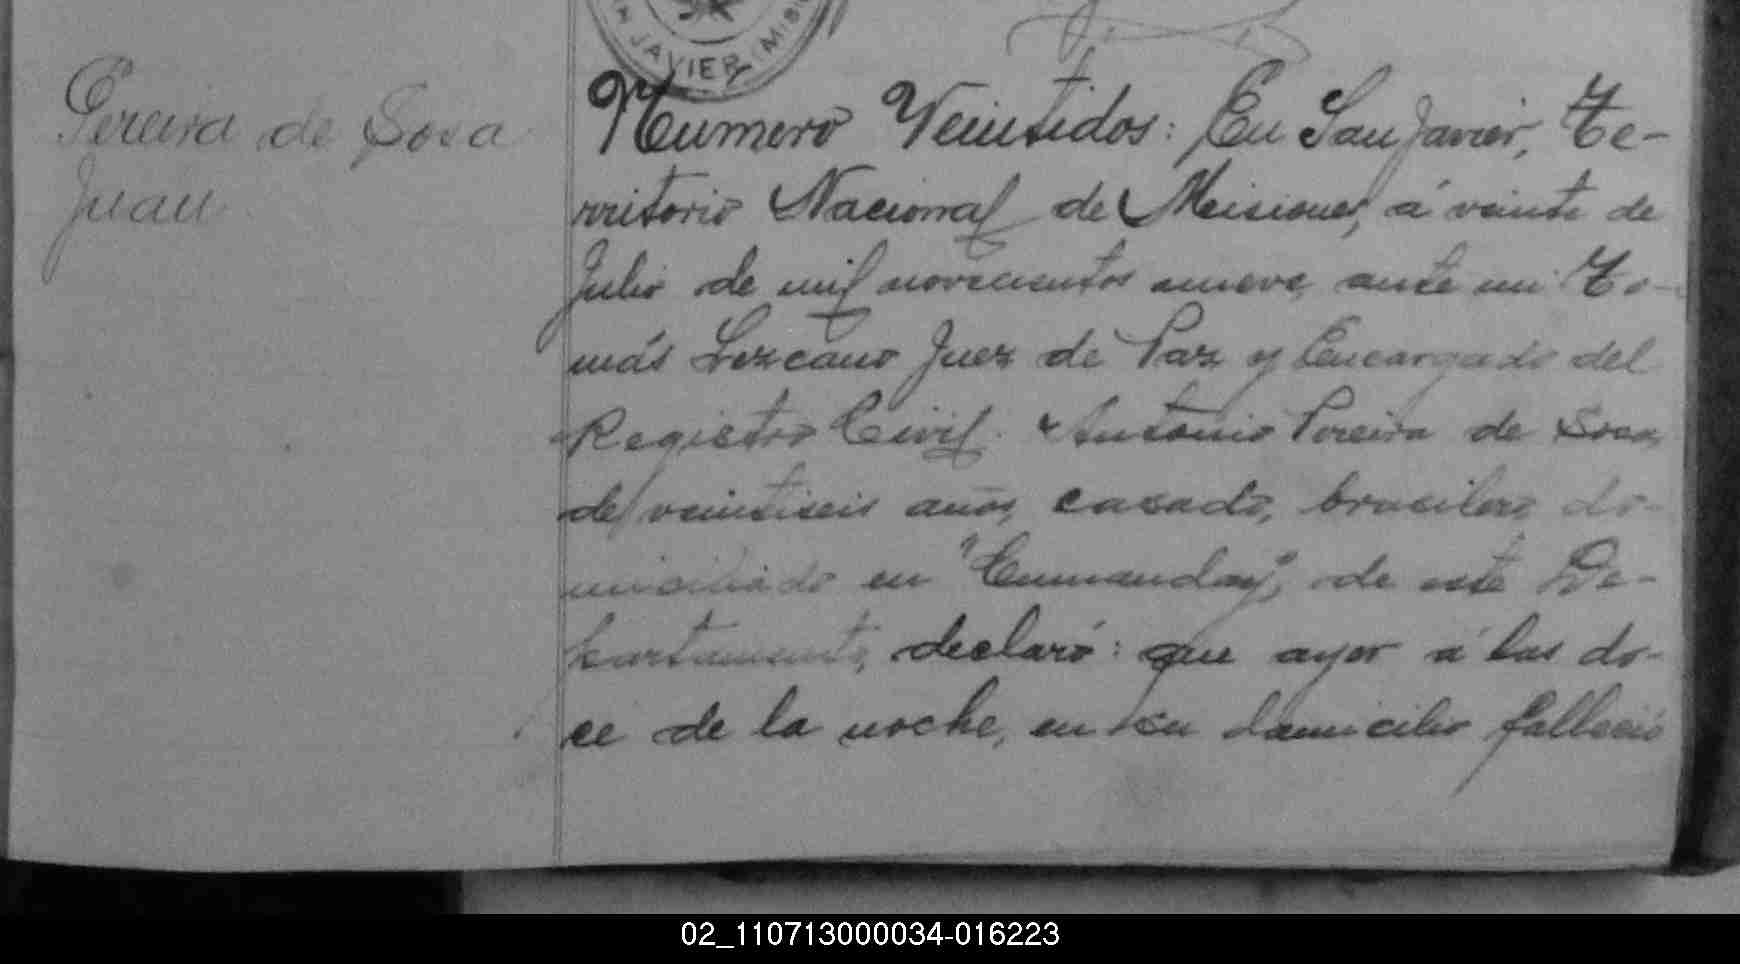 N JAVIER (MISI
Pereira de Sosa
Juan
Numero Veintidos: En San Javier, Te-
rritorio Nacional de Misiones, á veinte de
Julio de mil novecientos nueve, ante mi To-
más Lezcano Juez de Paz y Encargado del
Registro Civil. Antonio Pereira de Sosa,
de veintiseis años, casado, brasilero, do-
miciliado en "Cumanday", de este De-
partamento, declaró: que ayer á las do-
ce de la noche, en su domicilio falleció
02_110713000034-016223